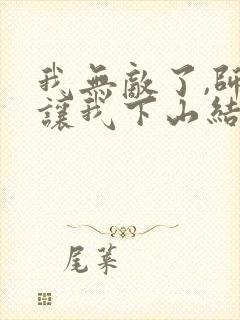 我無敵了,師
讓我下山結
尾葉